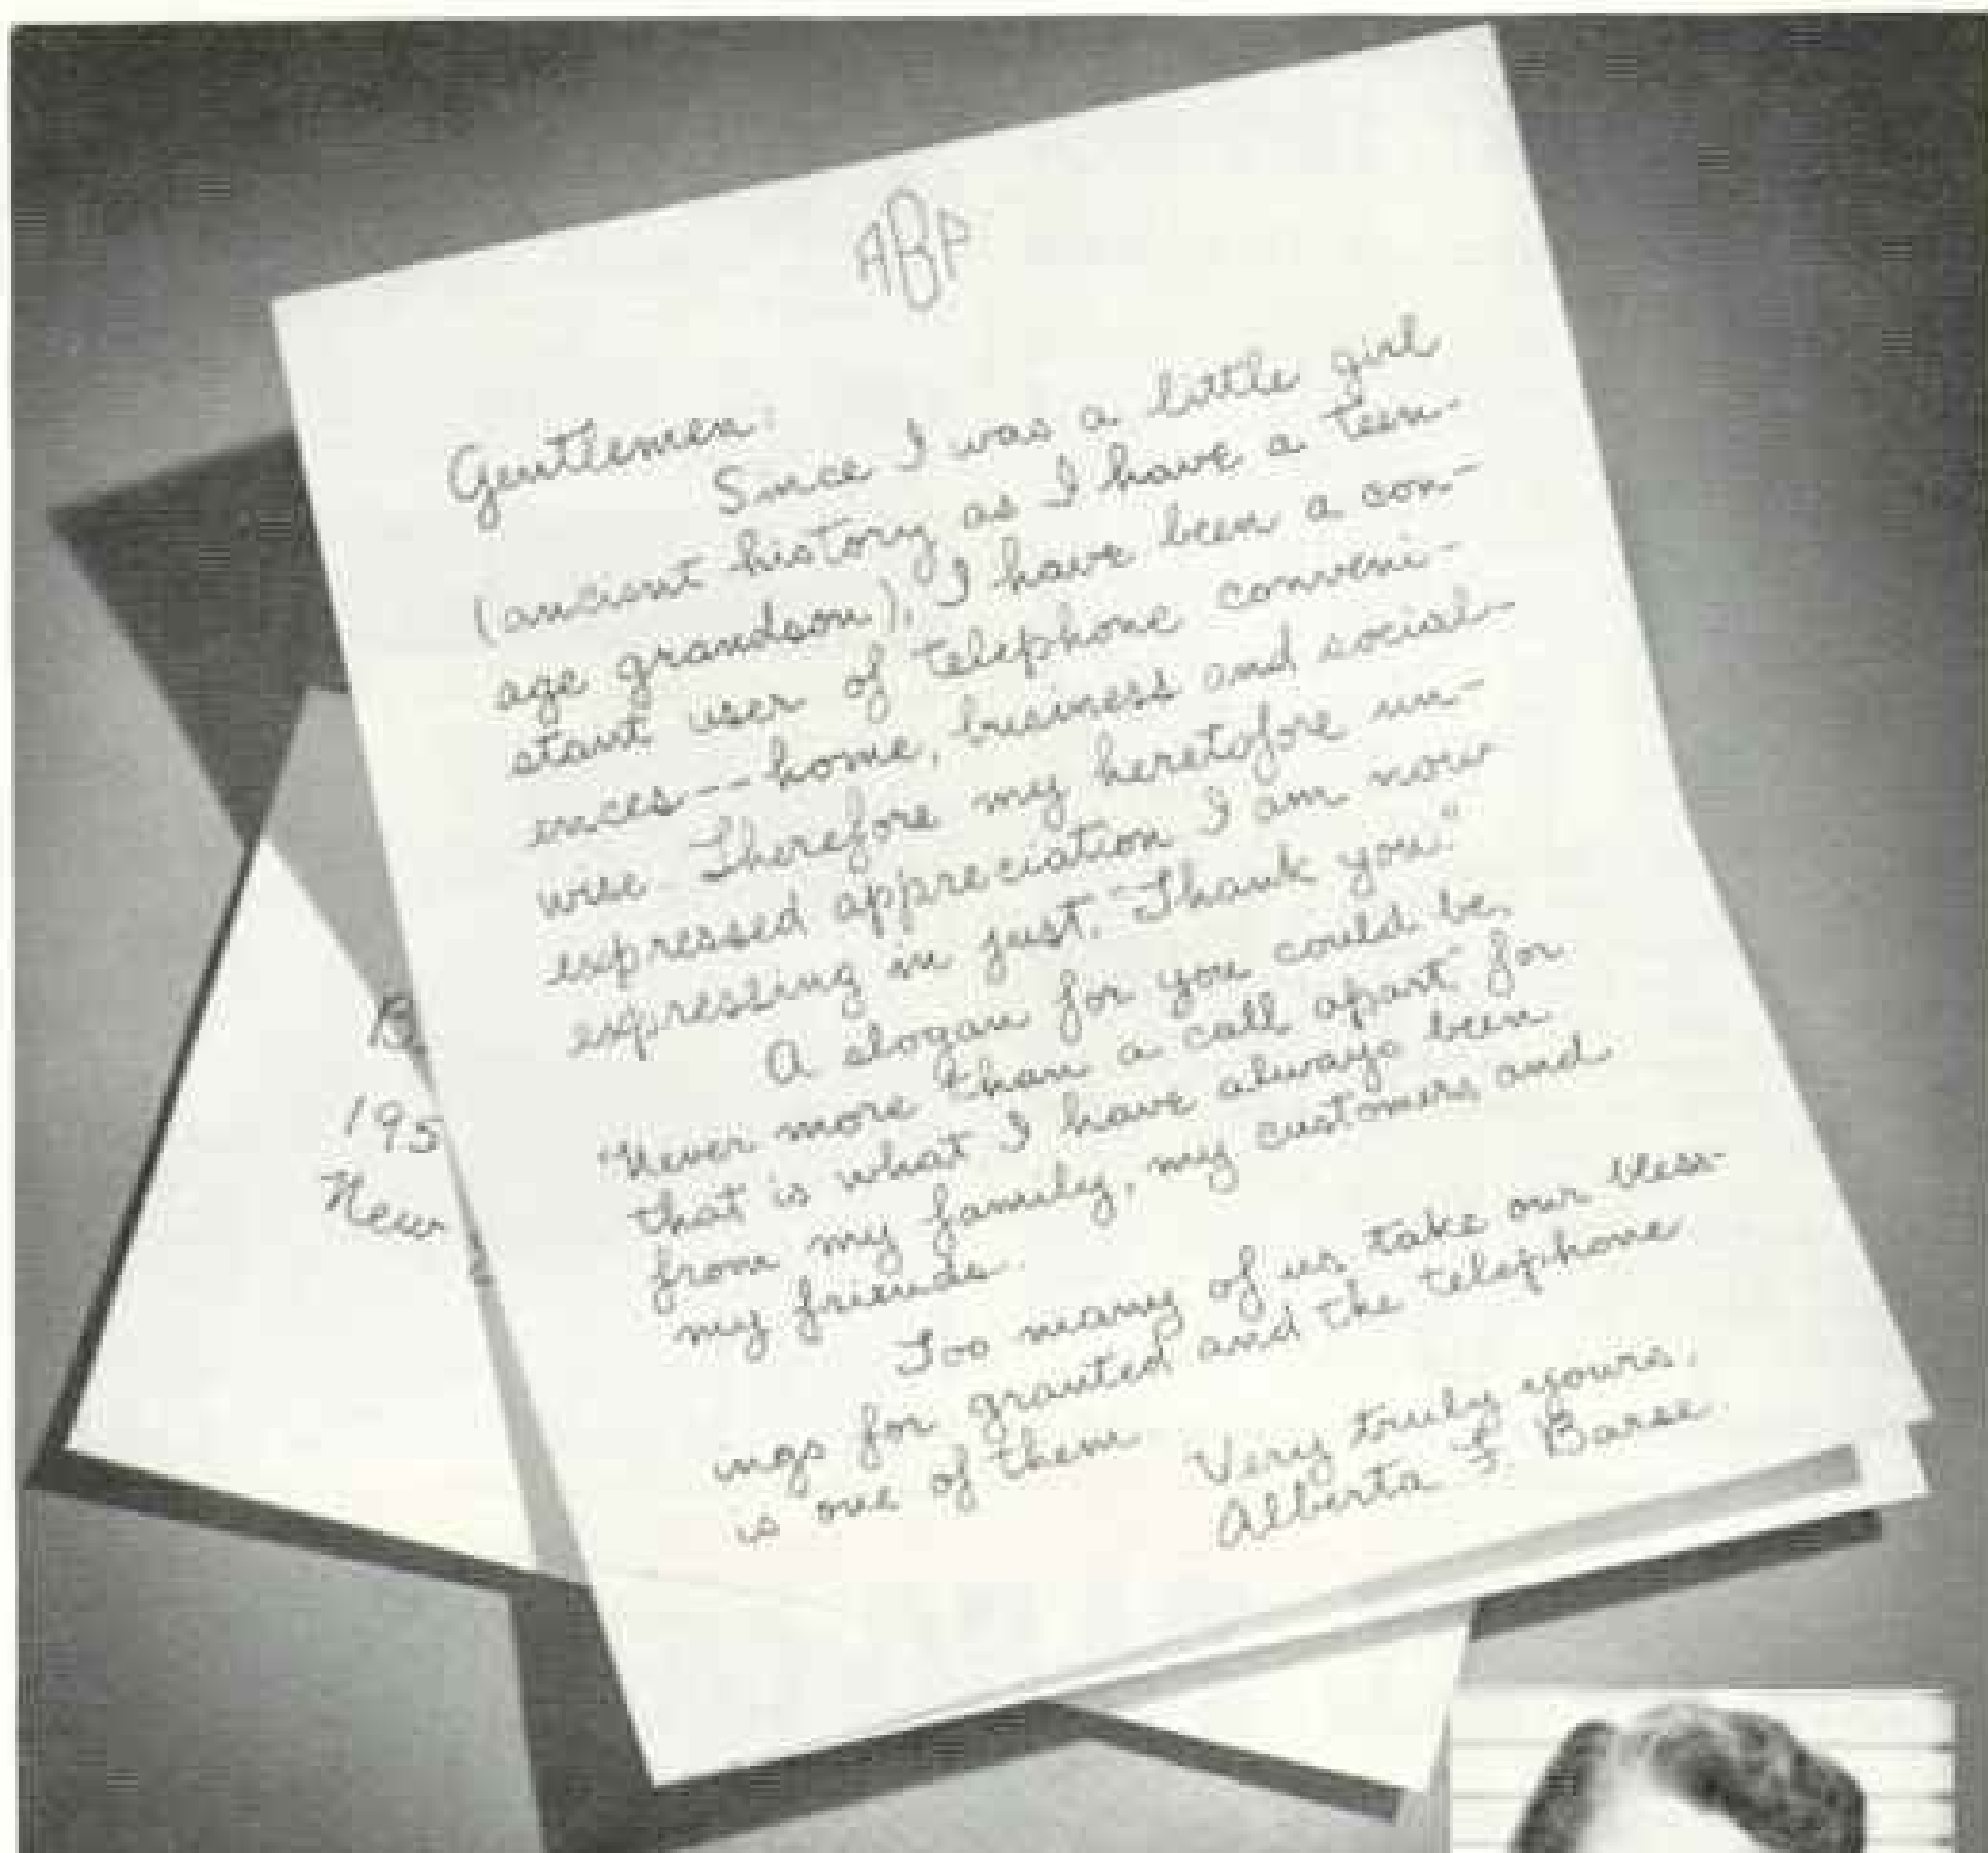 ABP
Gentlemen:
Since I was a little girl
(ancient history as I have a teen-
age grandson), I have been a con-
stant user of telephone conveni-
ences--home, business and social-
wise. Therefore my heretofore un-
expressed appreciation I am now
expressing in just, "Thank you."
A slogan for you could be,
"Never more than a call apart" for
that is what I have always been
from my family, my customers and
my friends.
Too many of us take our bless-
ings for granted and the telephone
is one of them
Very truly yours,
Alberta F. Barse.
195
New